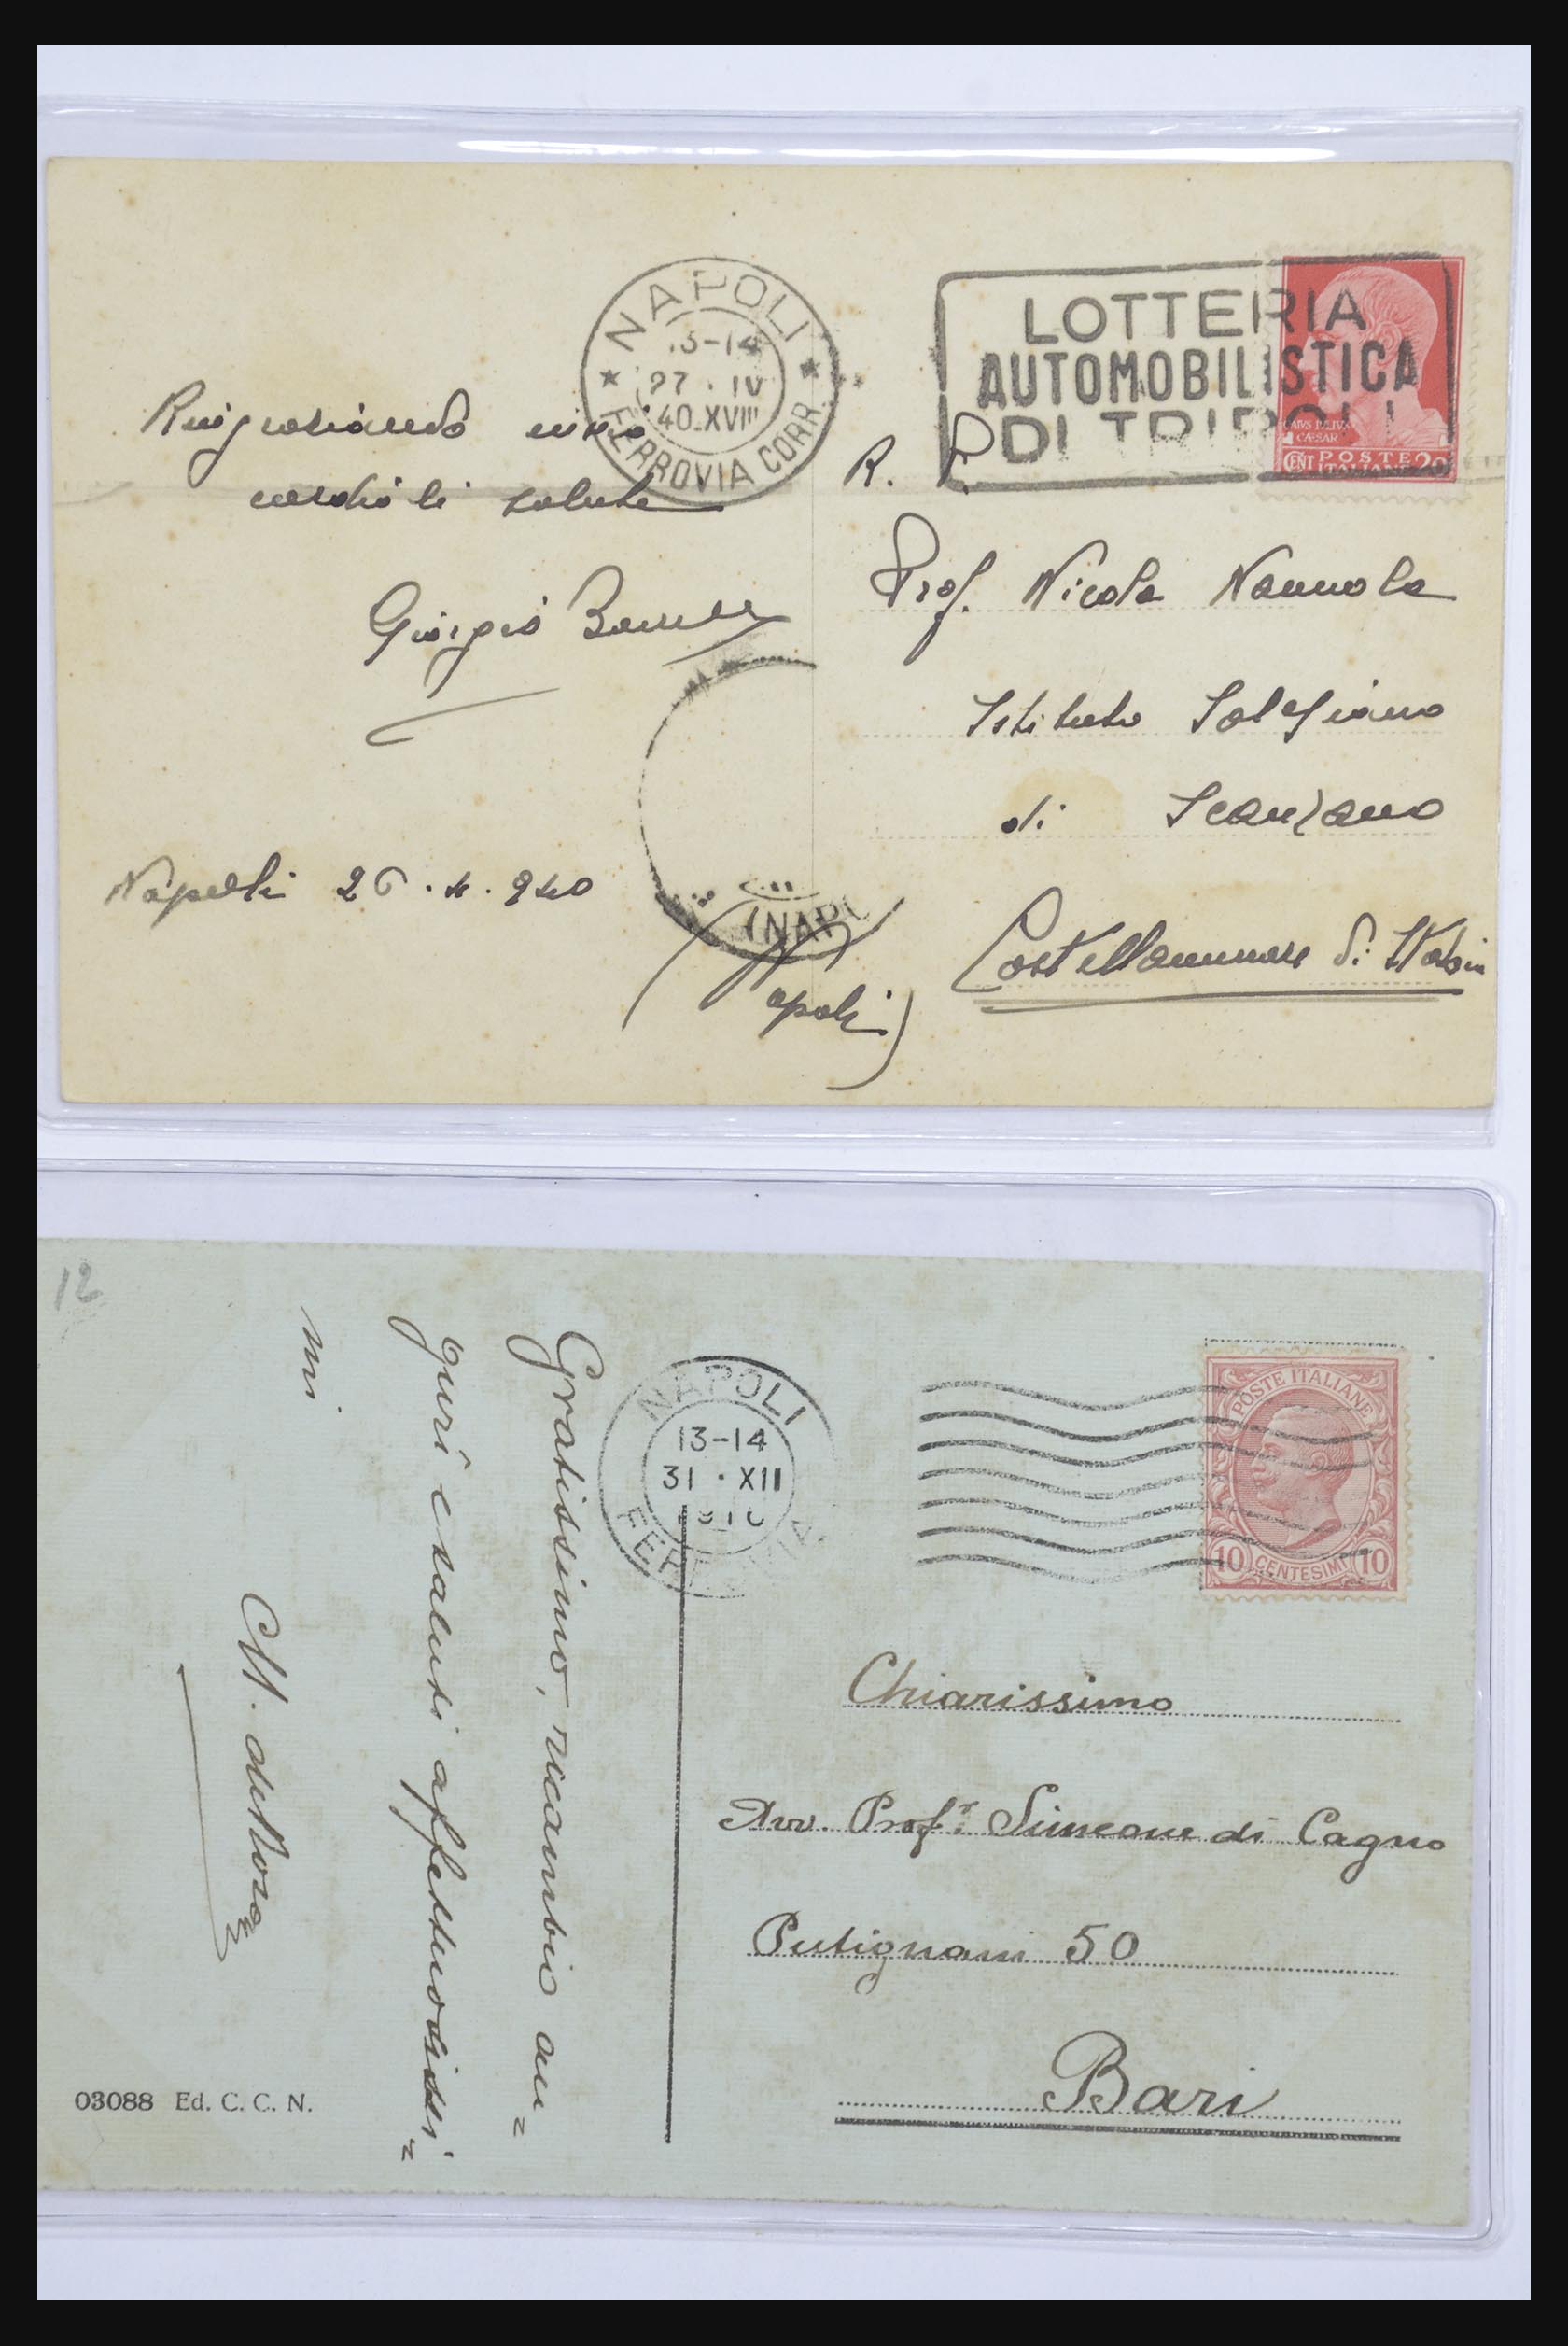 NAPOLI
13-14
27 · IV
40.XVIII
FERROVIA CORR.
LOTTERIA
AUTOMOBILISTICA
DI TRIPOLI
CAIVS IVLIVS
CAESAR
CENT POSTE 20
ITALIANE
Ringraziando invio
cordiali saluti
Giorgio
Napoli 26.4.940
R. P.
Prof. Nicola Nannola
Istituto Salesiano
di Scanzano
Castellammare di Stabia
(Napoli)
(NAPO
12
Gratissimo, ricambio au=
guri e saluti affettuosissi=
mi
M.
03088 Ed. C. C. N.
NAPOLI
13-14
31 · XII
FERROVIA
POSTE ITALIANE
10 CENTESIMI 10
Chiarissimo
Avv. Prof.r Simeone di Cagno
Putignani 50
Bari